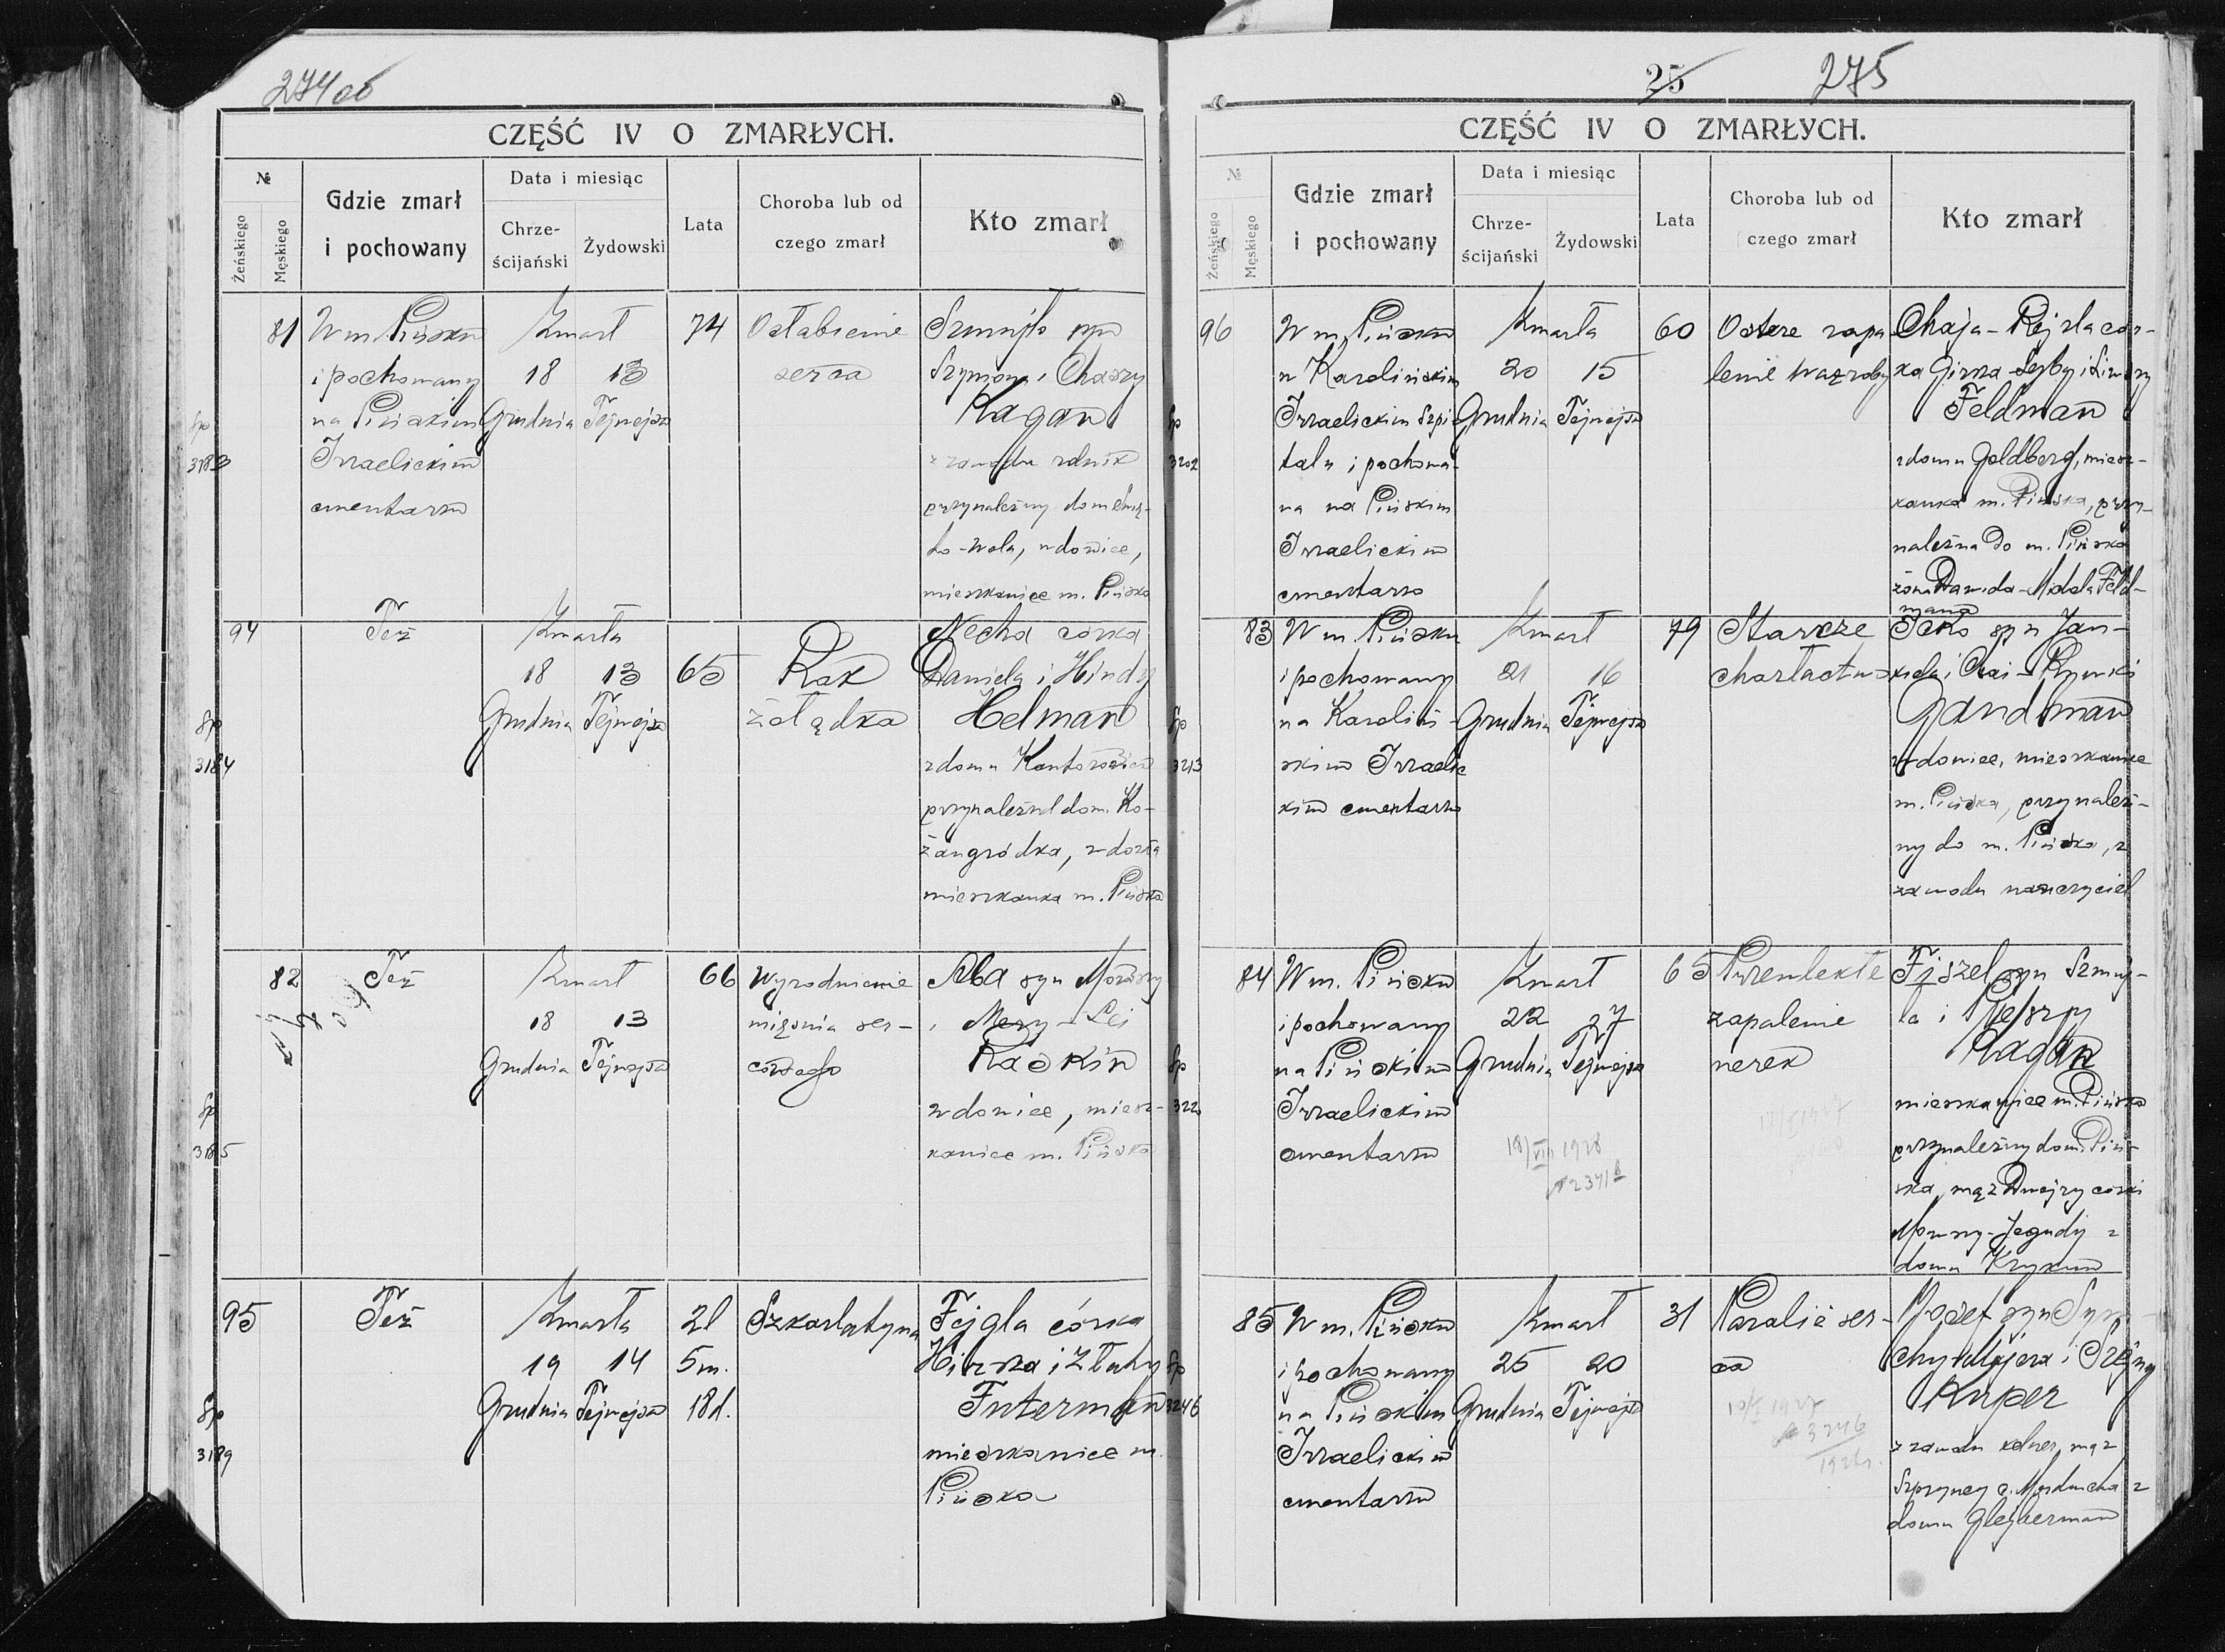 274 ob
CZĘŚĆ IV O ZMARŁYCH.
№
Żeńskiego
Męskiego
Gdzie zmarł
i pochowany
Data i miesiąc
Chrze-
ścijański
Żydowski
Lata
Choroba lub od
czego zmarł
Kto zmarł
81
W m. Pińsku
i pochowany
na Pińskim
Izraelickim
cmentarzu
Zmarł
18 13
Grudnia Tejwejsa
74
Osłabienie
serca
syn
Szymona i Chaszy
Kagan
z zawodu rolnik
przynależny do m.
wdowiec,
mieszkaniec m. Pińska
Sp
3183
94
Też
Zmarła
18 13
Grudnia Tejwejsa
65
Rak
żołądka
Necha córka
Daniela i Hindy
Helman
z domu Kantorowicz
przynależna do m. Ko-
żangródka, wdowa
mieszkanka m. Pińska
Sp
3184
82
Też
Zmarł
18 13
Grudnia Tejwejsa
66
Wyrodnienie
mięśnia ser-
cowego
Aba syn Mowszy
i Mery-Lei
Raskin
wdowiec, miesz-
kaniec m. Pińska
Sp
3185
95
Też
Zmarła
19 14
Grudnia Tejwejsa
2l
5m.
18d.
Szkarlatyna
Fejgla córka
Hirsza i Złaty
Futerman
mieszkaniec m.
Pińska
Sp
3189
25 275
CZĘŚĆ IV O ZMARŁYCH.
№
Żeńskiego
Męskiego
Gdzie zmarł
i pochowany
Data i miesiąc
Chrze-
ścijański
Żydowski
Lata
Choroba lub od
czego zmarł
Kto zmarł
96
W m. Pińsku
w Karolińskim
Izraelickim Szpi-
talu i pochowa-
na na Pińskim
Izraelickim
cmentarzu
Zmarła
20 15
Grudnia Tejwejsa
60
Ostre zapa
lenie wątroby
Chaja-Rejzla cór-
ka Girsza-Lejby i
Feldman
z domu Goldberg, miesz-
kanka m. Pińska, przy-
należna do m. Pińska
żona Dawida- Feld-
mana
Sp
3202
83
W m. Pińsku
i pochowany
na Karoliń-
skim Izraelic
kim cmentarzu
Zmarł
21 16
Grudnia Tejwejsa
79
Starcze
charłactwo
Icko syn Jan-
kiela i Chai-Rywki
Gandman
wdowiec, mieszkaniec
m. Pińska, przynależ-
ny do m. Pińska, z
zawodu nauczyciel
Sp
3213
84
W m. Pińsku
i pochowany
na Pińskim
Izraelickim
cmentarzu
Zmarł
22 27
Grudnia Tejwejsa
65
Przewlekłe
zapalenie
nerek
Fiszel syn Szmuj-
ła i Pieszy
Kagan
mieszkaniec m. Pińska
przynależny do m. Piń-
ska, mąż Dwejry córki
Mowszy-Jegudy z
domu
Sp
3220
18/VIII 1928
85
W m. Pińsku
i pochowany
na Pińskim
Izraelickim
cmentarzu
Zmarł
25 20
Grudnia Tejwejsa
31
Paraliż ser-
ca
Josef syn Sym-
chy-Mejera i Szejny
Kuper
z zawodu kelner, mąż
Szpryncy c. Morducha z
domu Glejberman
Sp
3246
1927
3246
1926 r.